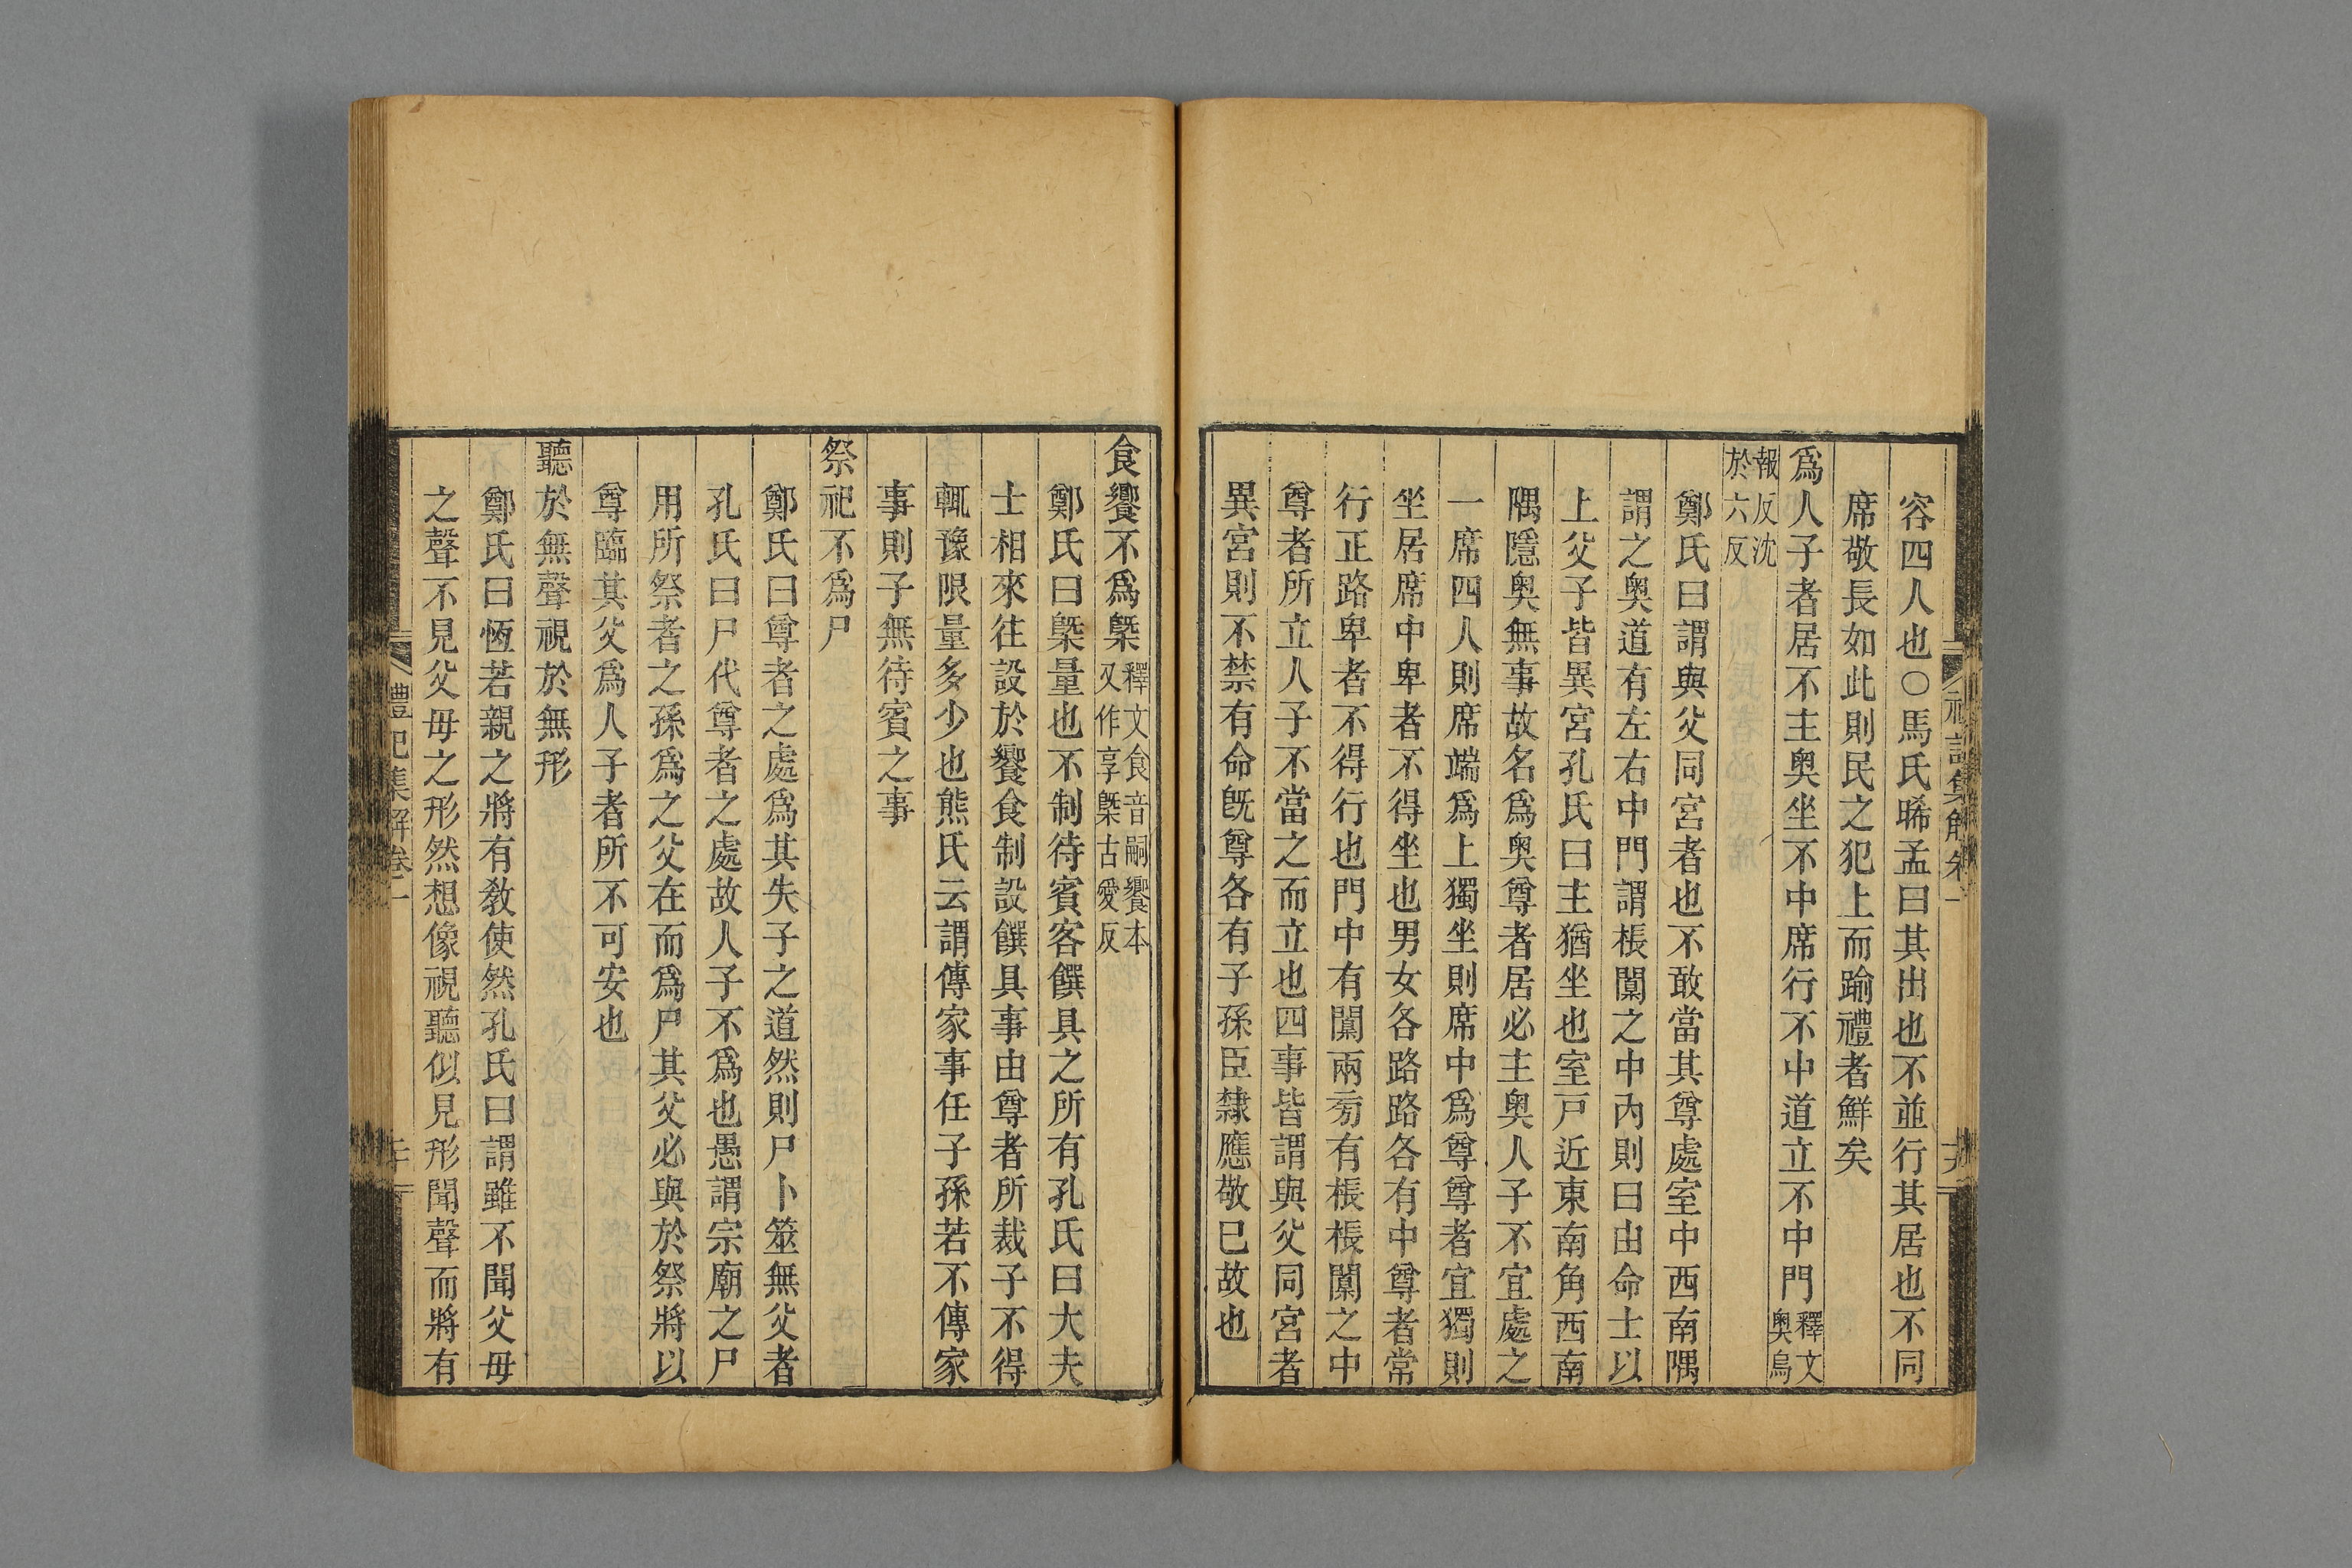 容四人也○馬氏晞孟曰其出也不並行其居也不同
席敬長如此則民之犯上而踰禮者鮮矣
爲人子者居不主奥坐不中席行不中道立不中門釋文奥烏
報反沈於六反
鄭氏曰謂與父同宮者也不敢當其尊處室中西南隅
謂之奥道有左右中門謂棖闑之中內則曰由命士以
上父子皆異宮孔氏曰主猶坐也室戸近東南角西南
隅隱奥無事故名爲奥尊者居必主奥人子不宜處之
一席四人則席端爲上獨坐則席中爲尊尊者宜獨則
坐居席中卑者不得坐也男女各路路各有中尊者常
行正路卑者不得行也門中有闑兩旁有棖棖闑之中
尊者所立人子不當之而立也四事皆謂與父同宮者
異宮則不禁有命旣尊各有子孫臣隸應敬已故也
食饗不爲槩釋文食音嗣饗本又作享槩古愛反
鄭氏曰槩量也不制待賓客饌具之所有孔氏曰大夫
士相來往設於饗食制設饌具事由尊者所裁子不得
輒豫限量多少也熊氏云謂傳家事任子孫若不傳家
事則子無待賓之事
祭祀不爲尸
鄭氏曰尊者之處爲其失子之道然則尸卜筮無父者
孔氏曰尸代尊者之處故人子不爲也愚謂宗廟之尸
用所祭者之孫爲之父在而爲尸其父必與於祭將以
尊臨其父爲人子者所不可安也
聽於無聲視於無形
鄭氏曰恆若親之將有敎使然孔氏曰謂雖不聞父母
之聲不見父母之形然想像視聽似見形聞聲而將有
禮記集解卷二